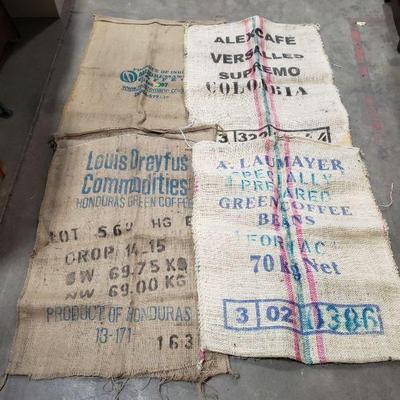 OF INDI
ALEXCAFÉ
VERSALLES
SUPREMO
COLOMBIA
Louis Dreyfus
Commodities
HONDURAS GREEN COFFEE
LOT 5.62 HG
CROP 14.15
GW 69.75 KG
NW 69.00 KG
PRODUCT OF HONDURAS
13-171
163
A. LAUMAYER
SPECIALLY
PREPARED
GREEN COFFEE
BEANS
70 kg Net
3 02 0386